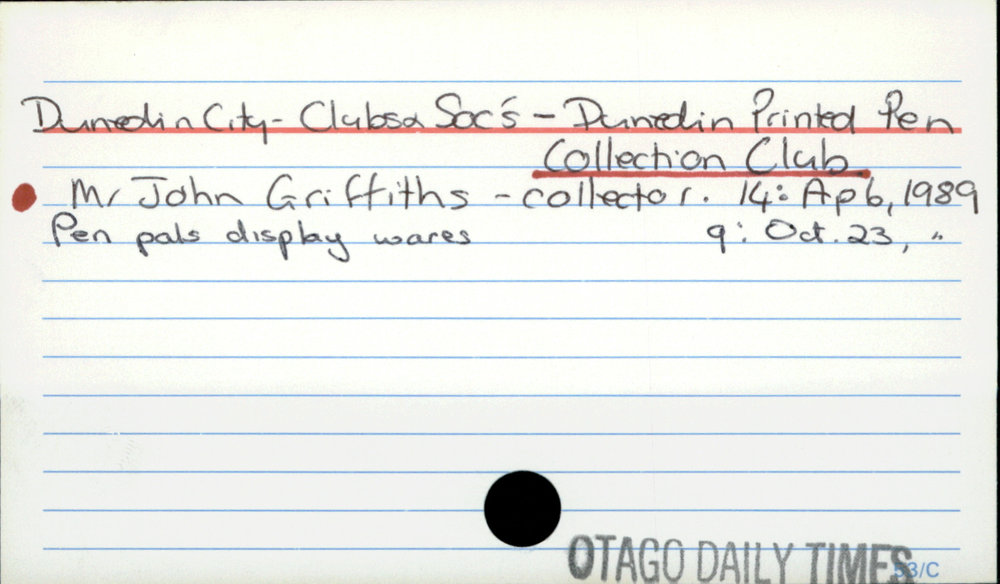 Dunedin City - Clubs & Soc's - Dunedin Printed Pen
Collection Club
Mr John Griffiths - collector. 14: Ap 6, 1989
Pen pals display wares 9: Oct. 23, "
OTAGO DAILY TIMES
53/C